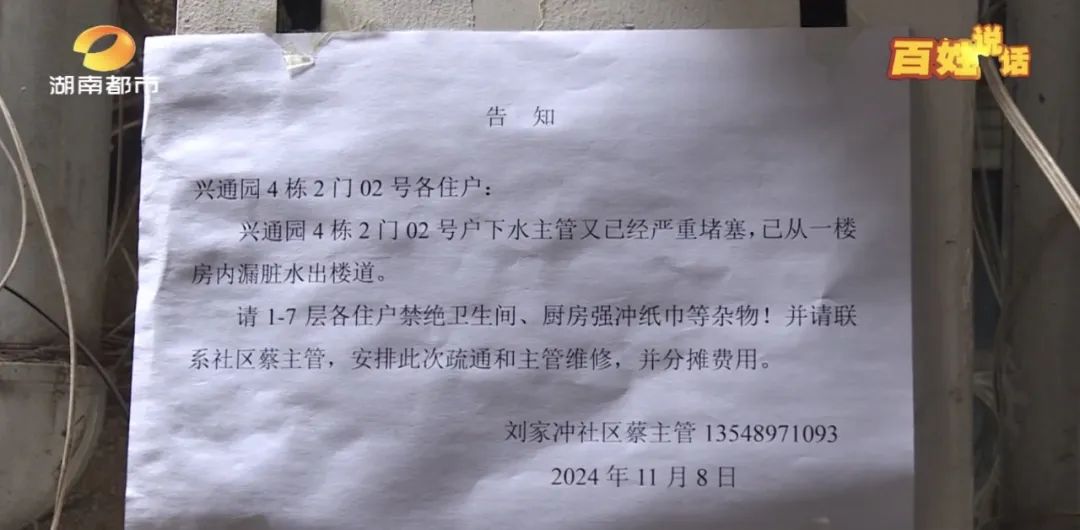 湖南都市
百姓说话
告 知
兴通园4栋2门02号各住户：
兴通园4栋2门02号户下水主管又已经严重堵塞，已从一楼
房内漏脏水出楼道。
请1-7层各住户禁绝卫生间、厨房强冲纸巾等杂物！并请联
系社区蔡主管，安排此次疏通和主管维修，并分摊费用。
刘家冲社区蔡主管 13548971093
2024年11月8日